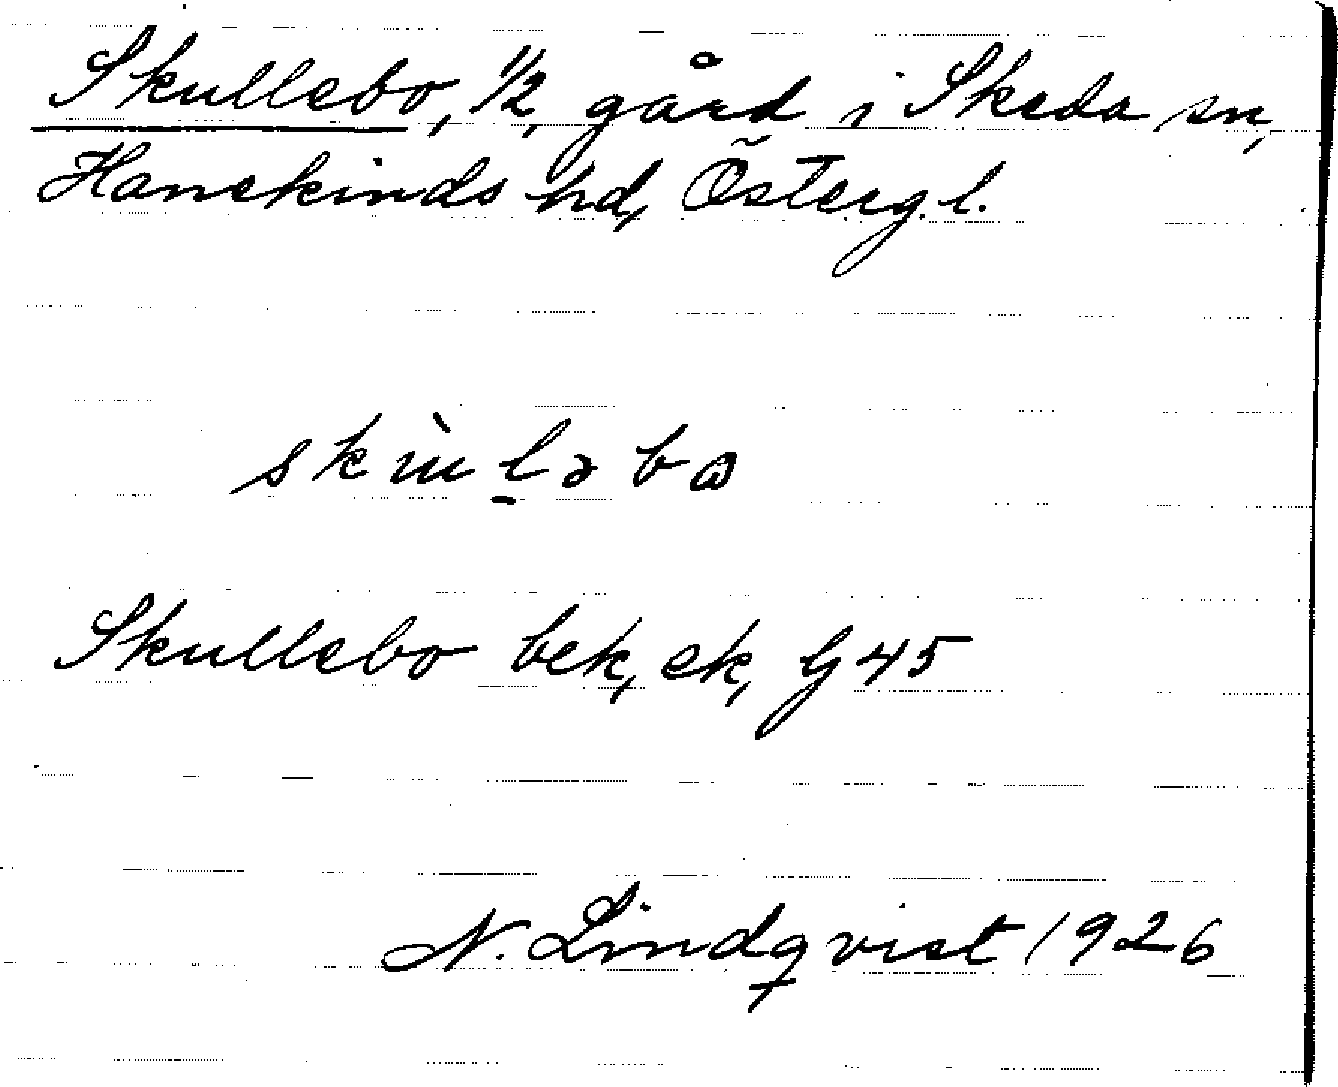 Skullebo, 1/2, gård i Skeda sn,
Hanekinds hd, Österg. l.
skùl̠əbɷ
Skullebo bek, ek, G 45
N. Lindqvist 1926